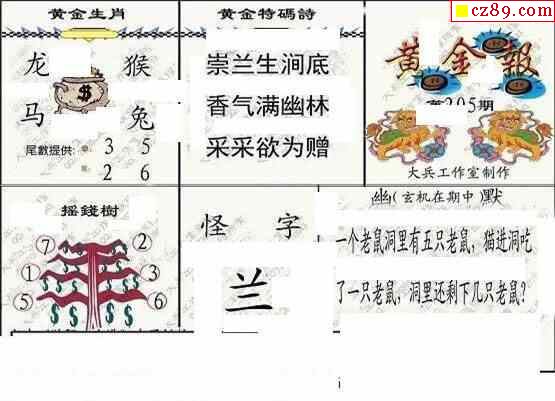 cz89.com
黄金生肖
龙 猴
马 兔
尾數提供: 3 5
2 6
黄金特碼詩
崇兰生涧底
香气满幽林
采采欲为赠
黄金報
205期
大兵工作室制作
摇錢樹
⑦ ②
① ③
⑤ ⑥
怪 字
兰
幽(玄机在期中)默
一个老鼠洞里有五只老鼠，猫进洞吃
了一只老鼠，洞里还剩下几只老鼠?